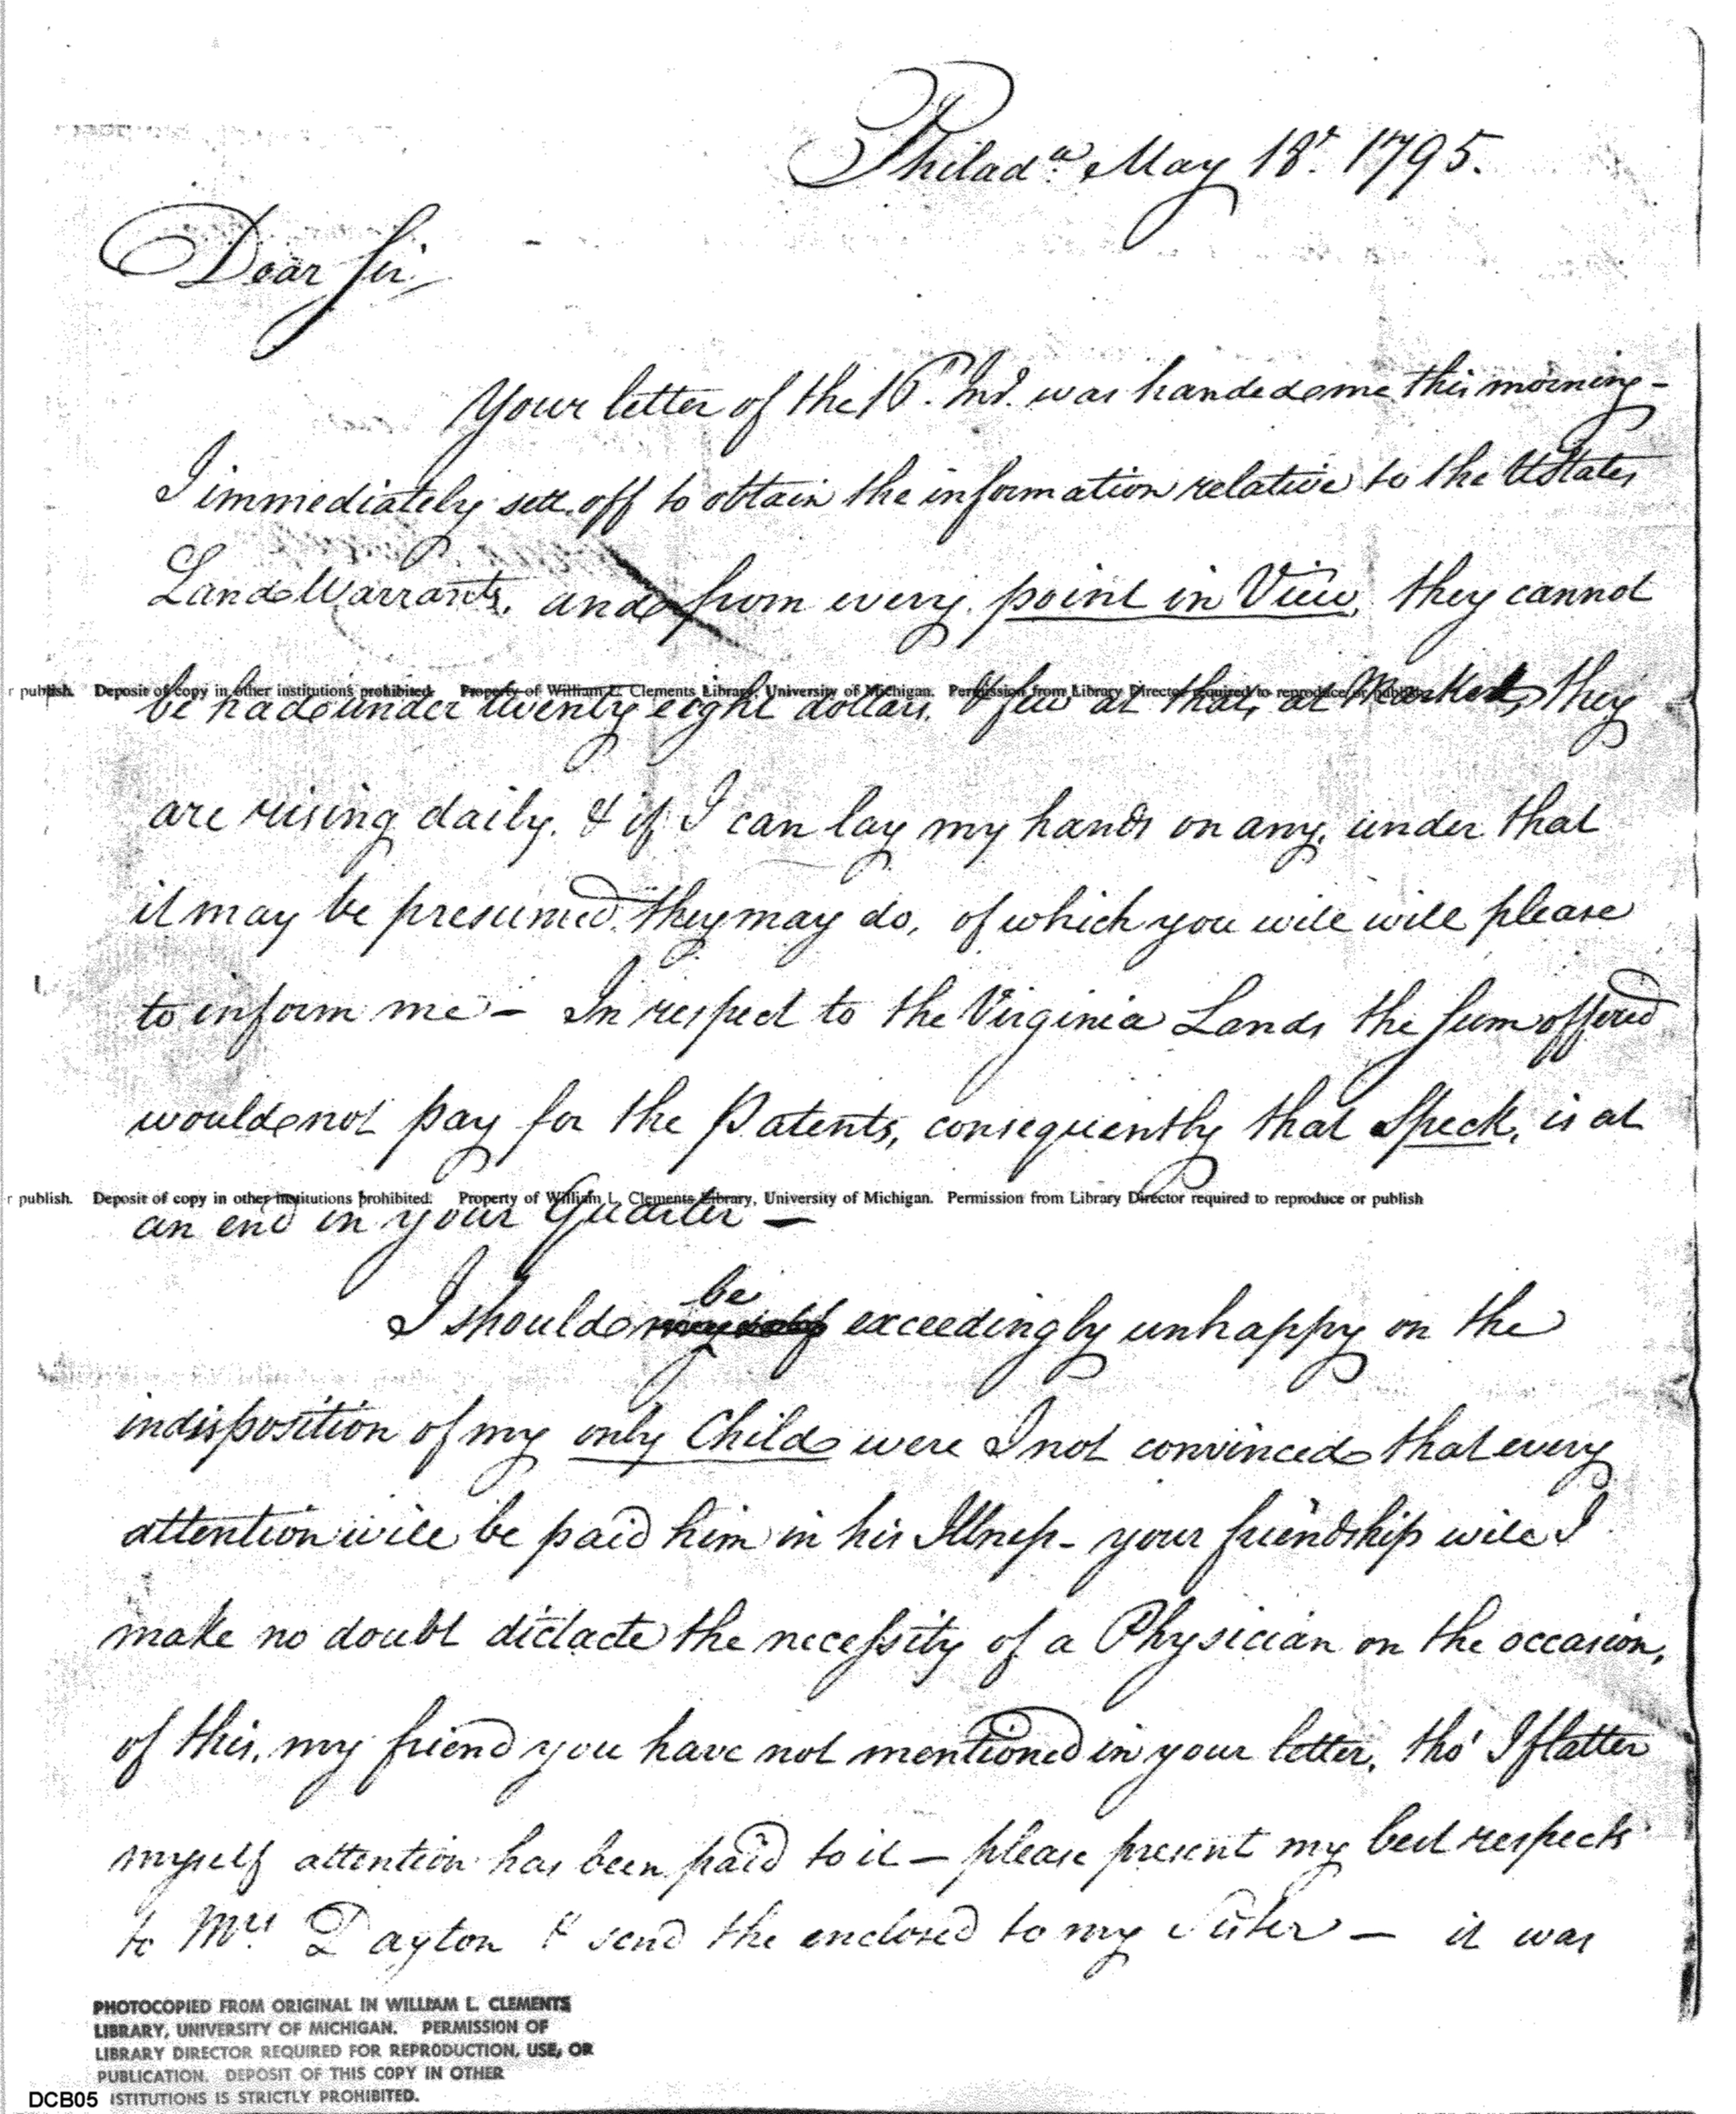 Philad.ª May 18ᵗ. 1795.
Dear Sir,
Your letter of the 16ᵗ. Inst. was handed me this morning –
I immediately sett off to obtain the information relative to the UStates
Land Warrants, and from every point in View, they cannot
r publish. Deposit of copy in other institutions prohibited. Property of William L. Clements Library, University of Michigan. Permission from Library Director required to reproduce or publish
be had under twenty eight dollars, & few at that, at Market, they
are rising daily. & if I can lay my hands on any, under that
it may be presumed, they may do, of which you will will please
to inform me – In respect to the Virginia Lands the Sum offered
would not pay for the Patents, consequently that Speck, is at
r publish. Deposit of copy in other institutions prohibited. Property of William L. Clements Library, University of Michigan. Permission from Library Director required to reproduce or publish
an end in your Quarter –
be
I should myself exceedingly unhappy on the
indisposition of my only Child were I not convinced that every
attention will be paid him in his Illness – your friendship will I
make no doubt dictacte the necessity of a Physician on the occasion,
of this, my friend you have not mentioned in your letter, tho' I flatter
myself attention has been paid to it – please present my best respects
to Mrs. Dayton & send the enclosed to my Sister – it was
PHOTOCOPIED FROM ORIGINAL IN WILLIAM L. CLEMENTS
LIBRARY, UNIVERSITY OF MICHIGAN. PERMISSION OF
LIBRARY DIRECTOR REQUIRED FOR REPRODUCTION, USE, OR
PUBLICATION. DEPOSIT OF THIS COPY IN OTHER
DCB05 ISTITUTIONS IS STRICTLY PROHIBITED.